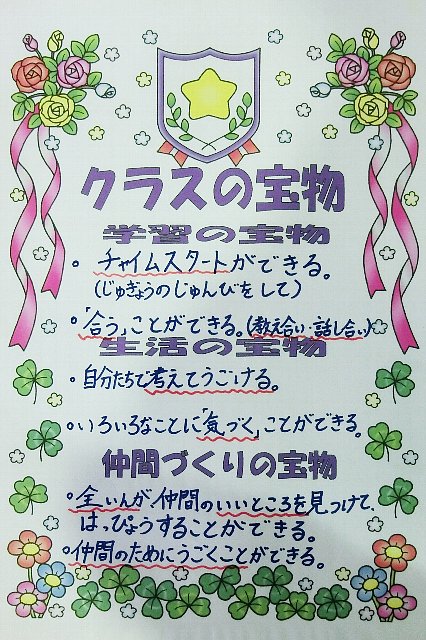 クラスの宝物
学習の宝物
・チャイムスタートができる。
(じゅぎょうのじゅんびをして)
・「合う」ことができる。(教え合い・話し合い)
生活の宝物
・自分たちで考えてうごける。
・いろいろなことに「気づく」ことができる。
仲間づくりの宝物
・全いんが、仲間のいいところを見つけて、
はっぴょうすることができる。
・仲間のためにうごくことができる。